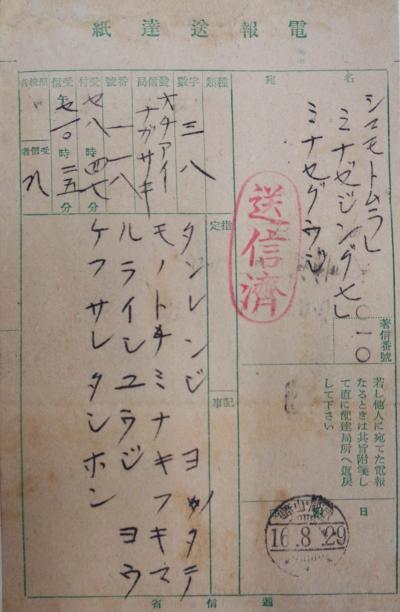 電報送達紙
宛名
シマモトムラ
ミナセジング
ミナセグウジ
送信濟
著信番號
〇一〇
若し他人に宛てた電報
なるときは其旨附箋し
て直に配達局所へ返戻
して下さい
日
16.8.29
種類
字數
三八
發信局
オチアイ
ナガサキ
番號
一一八
受付
時 四七分
受信
時 分
受信者
指定
記事
タンレンジ ヨカタテ
モノトチミナキフキマ
ルライシユラジ ヨウ
ケフサレタンホン
遞信省